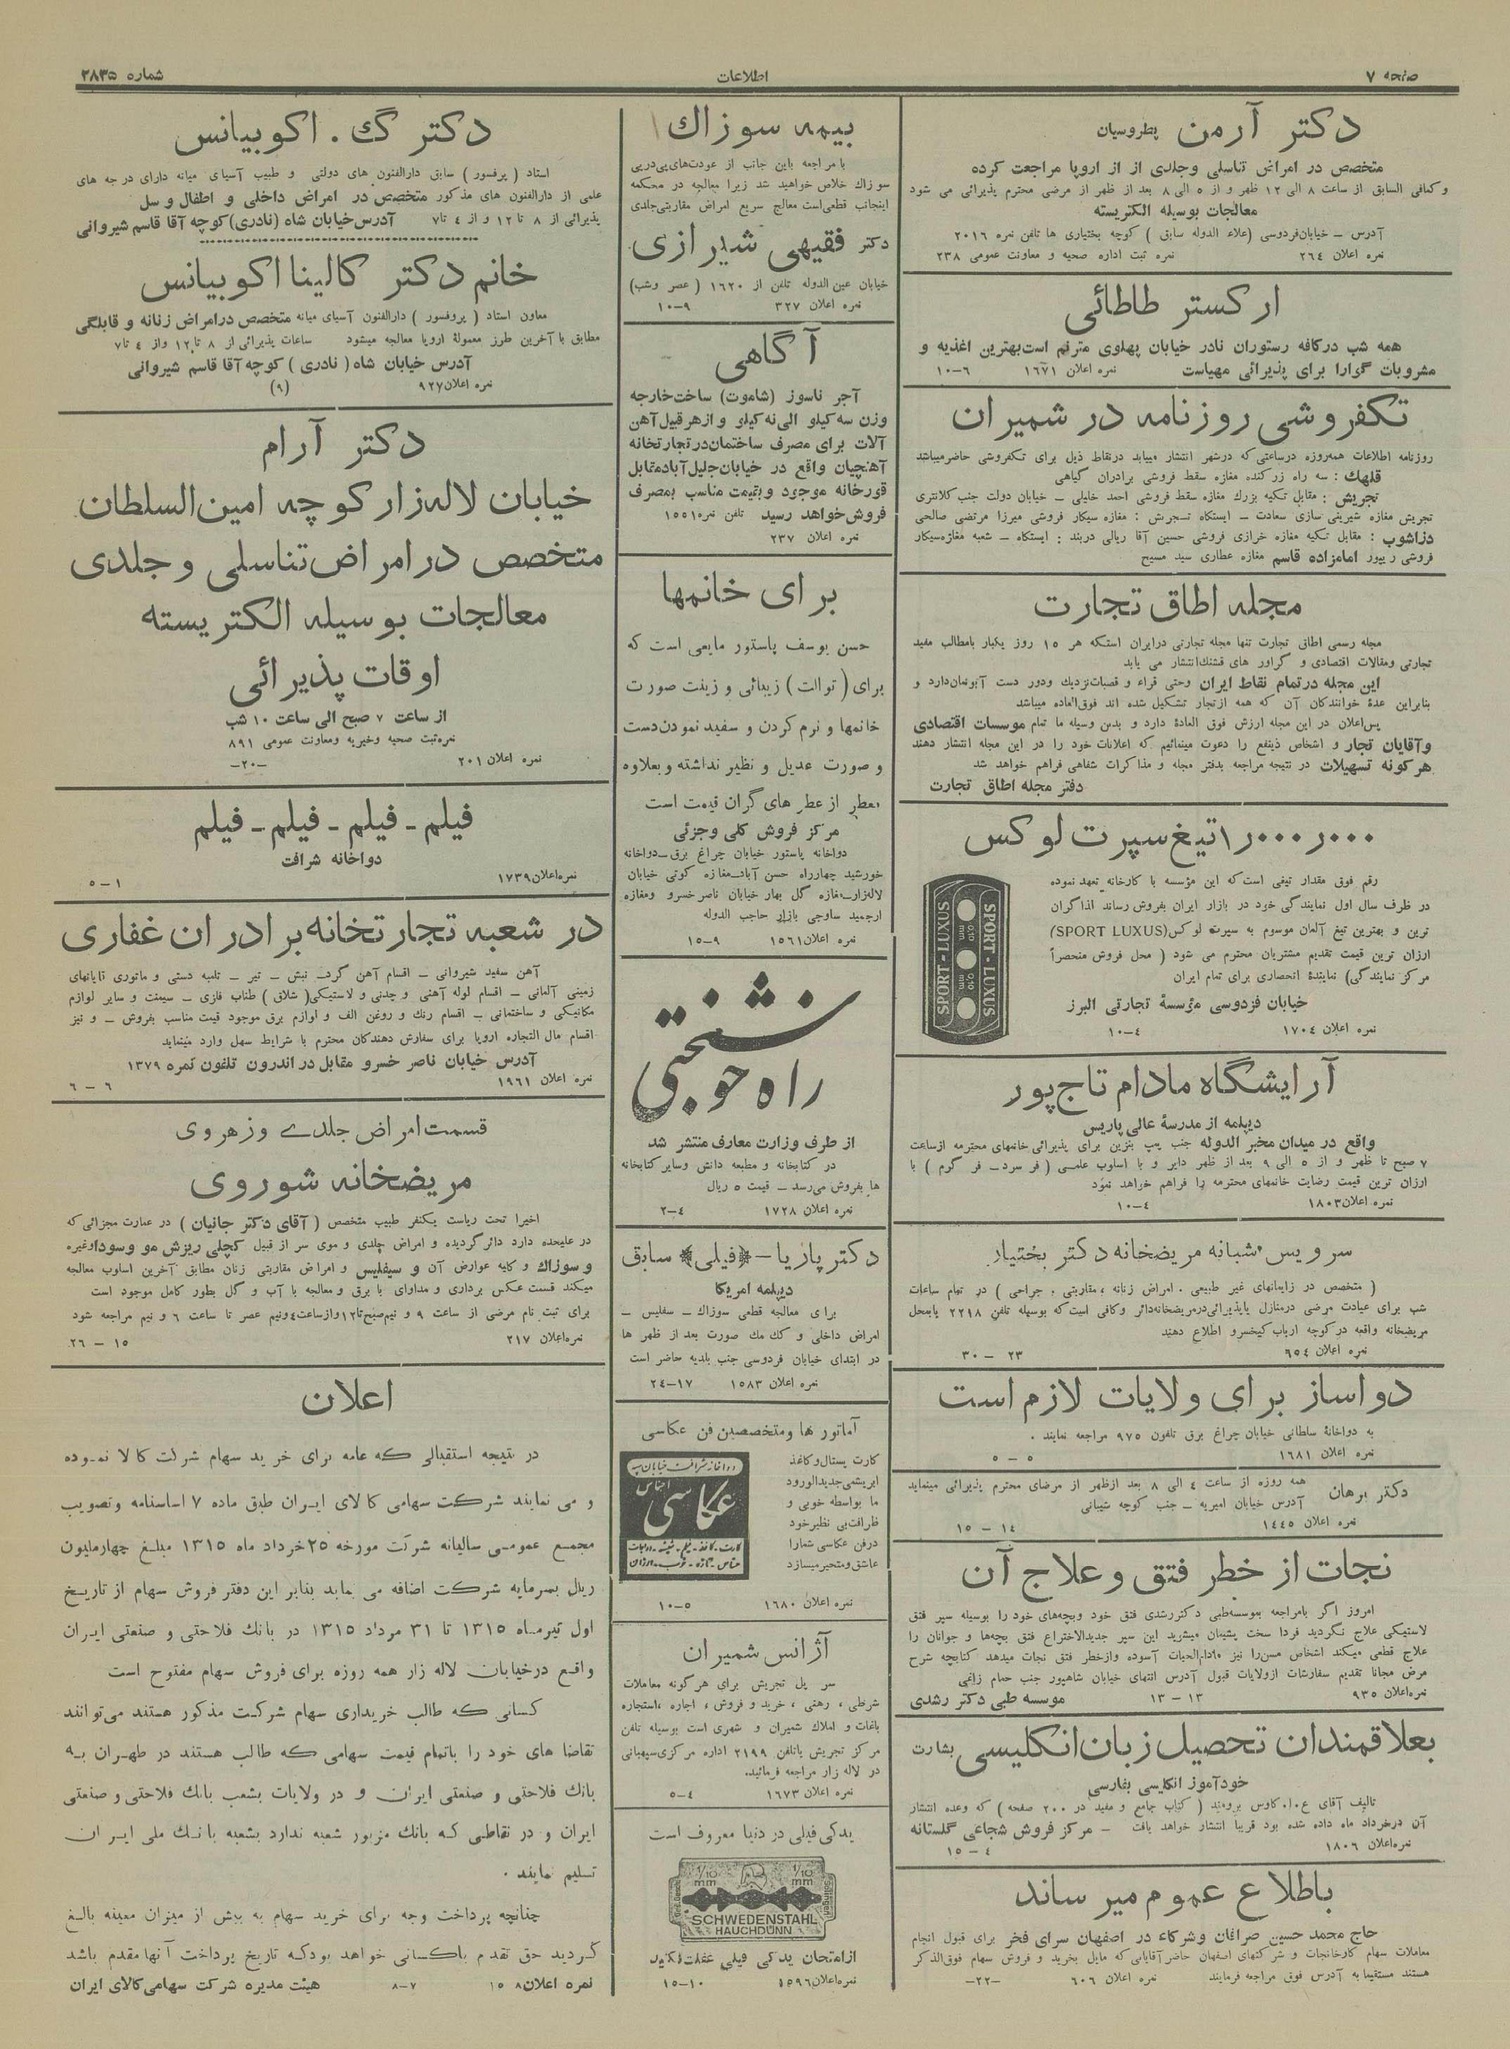 صفحه ۷
اطلاعات
شماره ۲۸۳۵
دکتر آرمن پطروسیان
متخصص در امراض تناسلی وجلدی از از اروپا مراجعت کرده
و کمافی السابق از ساعت ۸ الی ۱۲ ظهر و از ۵ الی ۸ بعد از ظهر از مرضی محترم پذیرائی می شود
معالجات بوسیله الکتریسته
آدرس – خیابان فردوسی (علاء الدوله سابق) کوچه بختیاری ها تلفن نمره ۲۰۱۶
نمره اعلان ۲۶۴ نمره ثبت اداره صحیه و معاونت عمومی ۲۳۸
ارکستر طاطائی
همه شب درکافه رستوران نادر خیابان پهلوی مترنم است بهترین اغذیه و
مشروبات گوارا برای پذیرائی مهیاست نمره اعلان ۱۶۷۱ ۶–۱۰
تکفروشی روزنامه در شمیران
روزنامه اطلاعات همه‌روزه درساعتی که درشهر انتشار مییابد درنقاط ذیل برای تکفروشی حاضر میباشد
قلهك : سه راه زرکنده مغازه سقط فروشی برادران گیاهی
تجریش : مقابل تکیه بزرك مغازه سقط فروشی احمد خلیلی – خیابان دولت جنب کلانتری
تجریش مغازه شیرینی سازی سعادت – ایستگاه تجریش : مغازه سیگار فروشی میرزا مرتضی صالحی
دزاشوب : مقابل تکیه مغازه خرازی فروشی حسین آقا ریالی دربند : ایستگاه – شعبه مغازه سیگار
فروشی ریپور امامزاده قاسم مغازه عطاری سید مسیح
مجله اطاق تجارت
مجله رسمی اطاق تجارت تنها مجله تجارتی درایران استکه هر ۱۵ روز یکبار بامطالب مفید
تجارتی ومقالات اقتصادی و گراور های قشنك انتشار می یابد
این مجله درتمام نقاط ایران وحتی قراء و قصبات نزدیك ودور دست آبونمان دارد و
بنابراین عدهٔ خوانندگان آن که همه ازتجار تشکیل شده اند فوق العاده میباشد
پس اعلان در این مجله ارزش فوق العادهٔ دارد و بدین وسیله ما تمام موسسات اقتصادی
وآقایان تجار و اشخاص ذینفع را دعوت مینمائیم که اعلانات خود را در این مجله انتشار دهند
هرگونه تسهیلات در نتیجه مراجعه بدفتر مجله و مذاکرات شفاهی فراهم خواهد شد
دفتر مجله اطاق تجارت
۱٫۰۰۰٫۰۰۰ تیغ سپرت لوکس
رقم فوق مقدار تیغی است که این مؤسسه با کارخانه تعهد نموده
در ظرف سال اول نمایندگی خود در بازار ایران بفروش رساند لذا گران
ترین و بهترین تیغ آلمان موسوم به سپرت لوکس (SPORT LUXUS)
ارزان ترین قیمت تقدیم مشتریان محترم می شود ( محل فروش منحصراً
مرکز نمایندگی) نمایندهٔ انحصاری برای تمام ایران
خیابان فردوسی مؤسسهٔ تجارتی البرز
نمره اعلان ۱۷۰۴ ۴–۱۰
SPORT-LUXUS
0,10 mm 0,10 mm
SPORT-LUXUS
آرایشگاه مادام تاج پور
دیپلمه از مدرسهٔ عالی پاریس
واقع در میدان مخبر الدوله جنب پمپ بنزین برای پذیرائی خانمهای محترمه ازساعت
۷ صبح تا ظهر و از ۵ الی ۹ بعد از ظهر دایر و با اسلوب علمی ( فر سرد – فر گرم ) با
ارزان ترین قیمت رضایت خانمهای محترمه را فراهم خواهد نمود
نمره اعلان ۱۸۰۳ ۴–۱۰
سرویس شبانه مریضخانه دکتر بختیار
( متخصص در زایمانهای غیر طبیعی . امراض زنانه ، مقاربتی ، جراحی ) در تمام ساعات
شب برای عیادت مرضی درمنازل یاپذیرائی درمریضخانه دائر وکافی است که بوسیله تلفن ۲۲۱۸ یابمحل
مریضخانه واقعه در کوچه ارباب کیخسرو اطلاع دهند
نمره اعلان ۶۵۴ ۲۳ – ۳۰
دواساز برای ولایات لازم است
به دواخانهٔ سلطانی خیابان چراغ برق تلفون ۹۷۵ مراجعه نمایند .
نمره اعلان ۱۶۸۱ ۵ – ۵
دکتر برهان
همه روزه از ساعت ۴ الی ۸ بعد ازظهر از مرضای محترم پذیرائی مینماید
آدرس خیابان امیریه – جنب کوچه شیبانی
نمره اعلان ۱۴۴۵ ۱۴ – ۱۵
نجات از خطر فتق و علاج آن
امروز اگر بامراجعه بموسسه طبی دکتر رشدی فتق خود وبچه‌های خود را بوسیله سپر فتق
لاستیکی علاج نگردید فردا سخت پشیمان میشوید این سپر جدیدالاختراع فتق بچه‌ها و جوانان را
علاج قطعی میکند اشخاص مسن را نیز مادام الحیات آسوده وازخطر فتق نجات میدهد کتابچه شرح
مرض مجانا تقدیم سفارشات ازولایات قبول آدرس انتهای خیابان شاهپور جنب حمام
نمره اعلان ۹۳۵ ۱۳ – ۱۳ موسسه طبی دکتر رشدی
بعلاقمندان تحصیل زبان انگلیسی بشارت
خودآموز انگلیسی بفارسی
تالیف آقای ع.ا. کاوس برومند ( کتاب جامع و مفید در ۲۰۰ صفحه ) که وعده انتشار
آن درخرداد ماه داده شده بود قریباً انتشار خواهد یافت – مرکز فروش شجاعی گلستانه
نمره اعلان ۱۸۰۶ ۴ – ۱۵
باطلاع عموم میرساند
حاج محمد حسین صرافان وشرکاء در اصفهان سرای فخر برای قبول انجام
معاملات سهام کارخانجات و شرکتهای اصفهان حاضر آقایانی که مایل بخرید و فروش سهام فوق الذکر
هستند مستقیما به آدرس فوق مراجعه فرمایند نمره اعلان ۶۰۶ –۲۲–
بیمه سوزاك
با مراجعه باین جانب از عودت‌های پی‌درپی
سوزاك خلاص خواهید شد زیرا معالجه در محکمه
اینجانب قطعی است معالج سریع امراض مقاربتی جلدی
دکتر فقیهی شیرازی
خیابان عین الدوله تلفن از ۱۶۲۰ ( عصر وشب)
نمره اعلان ۳۲۷ ۹–۱۰
آگاهی
آجر ناسوز (شاموت) ساخت خارجه
وزن سه کیلو الی نه کیلو و از هر قبیل آهن
آلات برای مصرف ساختمان در تجارتخانه
آهنچیان واقع در خیابان جلیل آباد مقابل
قورخانه موجود و بقیمت مناسب بمصرف
فروش خواهد رسید تلفن نمره ۱۵۵۱
نمره اعلان ۲۳۷
برای خانمها
حسن یوسف پاستور مایعی است که
برای ( توالت ) زیبائی و زینت صورت
خانمها و نرم کردن و سفید نمودن دست
و صورت عدیل و نظیر نداشته و بعلاوه
معطر از عطر های گران قیمت است
مرکز فروش کلی وجزئی
دواخانه پاستور خیابان چراغ برق – دواخانه
خورشید چهارراه حسن آباد – مغازه کوتی خیابان
لاله‌زار – مغازه گل بهار خیابان ناصر خسرو ومغازه
ارجمند ساوجی بازار حاجب الدوله
نمره اعلان ۱۵۶۱ ۹–۱۵
راه خوشبختی
از طرف وزارت معارف منتشر شد
در کتابخانه و مطبعه دانش وسایر کتابخانه
ها بفروش می‌رسد – قیمت ۵ ریال
نمره اعلان ۱۷۲۸ ۴–۲
دکتر پاریا – «فیلی» سابق
دیپلمه امریکا
برای معالجه قطعی سوزاك – سفلیس –
امراض داخلی و کك مك صورت بعد از ظهر ها
در ابتدای خیابان فردوسی جنب بلدیه حاضر است
نمره اعلان ۱۵۸۳ ۱۷–۲۴
آماتور ها ومتخصصین فن عکاسی
کارت پستال وکاغذ
ابریشمی جدیدالورود
ما بواسطه خوبی و
ظرافت بی نظیر خود
درفن عکاسی شما را
عاشق و متحیر میسازد
دواخانه شرافت خیابان سپه
اجناس
عکاسی
کارت . کاغذ . فیلم . شیشه . دوجات
جنس . تازه . خوب . ارزان
نمره اعلان ۱۶۸۰ ۵–۱۰
آژانس شمیران
سر پل تجریش برای هرگونه معاملات
شرطی ، رهنی ، خرید و فروش ، اجاره ، استجاره
باغات و املاك شمیران و شهری است بوسیله تلفن
مرکز تجریش یاتلفن ۲۱۹۹ اداره مرکزی سپهبانی
در لاله زار مراجعه فرمائید.
نمره اعلان ۱۶۷۳ ۴–۵
یدکی فیلی در دنیا معروف است
1/10 mm 1/10 mm
SCHWEDENSTAHL
HAUCHDÜNN
ازامتحان یدکی فیلی غفلت نکنید
نمره اعلان ۱۵۹۶ ۱۰–۱۵
دکتر گ . اکوبیانس
استاد ( پرفسور ) سابق دارالفنون های دولتی و طبیب آسیای میانه دارای درجه های
علمی از دارالفنون های مذکور متخصص در امراض داخلی و اطفال و سل
پذیرائی از ۸ تا ۱۲ و از ۴ تا ۷ آدرس خیابان شاه (نادری) کوچه آقا قاسم شیروانی
خانم دکتر کالینا اکوبیانس
معاون استاد ( پروفسور ) دارالفنون آسیای میانه متخصص درامراض زنانه و قابلگی
مطابق با آخرین طرز معمولهٔ اروپا معالجه میشود ساعات پذیرائی از ۸ تا ۱۲ و از ۴ تا ۷
آدرس خیابان شاه ( نادری ) کوچه آقا قاسم شیروانی
نمره اعلان ۹۲۷ (۹)
دکتر آرام
خیابان لاله زار کوچه امین السلطان
متخصص در امراض تناسلی و جلدی
معالجات بوسیله الکتریسته
اوقات پذیرائی
از ساعت ۷ صبح الی ساعت ۱۰ شب
نمره ثبت صحیه وخیریه ومعاونت عمومی ۸۹۱
نمره اعلان ۲۰۱ –۲۰–
فیلم – فیلم – فیلم – فیلم
دواخانه شرافت
نمره اعلان ۱۷۳۹ ۱ – ۵
در شعبه تجارتخانه برادران غفاری
آهن سفید شیروانی – اقسام آهن گرد – نبش – تیر – تلمبه دستی و ماتوری قایانهای
زمینی آلمانی – اقسام لوله آهنی و چدنی و لاستیکی ( شلاق ) طناب فلزی – سیمنت و سایر لوازم
مکانیکی و ساختمانی – اقسام رنك و روغن الف و لوازم برق موجود قیمت مناسب بفروش – و نیز
اقسام مال التجاره اروپا برای سفارش دهندگان محترم با شرایط سهل وارد مینماید
آدرس خیابان ناصر خسرو مقابل در اندرون تلفون نمره ۱۳۷۹
نمره اعلان ۱۹۶۱ ۶ – ۶
قسمت امراض جلدی و زهروی
مریضخانه شوروی
اخیرا تحت ریاست یکنفر طبیب متخصص ( آقای دکتر جانیان ) در عمارت مجزائی که
در علیحده دارد دائر گردیده و امراض جلدی و موی سر از قبیل کچلی ریزش مو وسودا وغیره
و سوزاك و کلیه عوارض آن و سیفلیس و امراض مقاربتی زنان مطابق آخرین اسلوب معالجه
میکند قسمت عکس برداری و مداوای با برق و معالجه با آب و گل بطور کامل موجود است
برای ثبت نام مرضی از ساعت ۹ و نیم صبح تا ۱۲ واز ساعت ۴ ونیم عصر تا ساعت ۶ و نیم مراجعه شود
نمره اعلان ۲۱۷ ۱۵ – ۲۶
اعلان
در نتیجه استقبالی که عامه برای خرید سهام شرکت کالا نموده
و می نمایند شرکت سهامی کالای ایران طبق ماده ۷ اساسنامه وتصویب
مجمع عمومی سالیانه شرکت مورخه ۲۵ خرداد ماه ۱۳۱۵ مبلغ چهارملیون
ریال بسرمایه شرکت اضافه می نماید بنابر این دفتر فروش سهام از تاریخ
اول تیرماه ۱۳۱۵ تا ۳۱ مرداد ۱۳۱۵ در بانك فلاحتی و صنعتی ایران
واقع درخیابان لاله زار همه روزه برای فروش سهام مفتوح است
کسانی که طالب خریداری سهام شرکت مذکور هستند می‌توانند
تقاضا های خود را باتمام قیمت سهامی که طالب هستند در طهران به
بانك فلاحتی و صنعتی ایران و در ولایات بشعب بانك فلاحتی و صنعتی
ایران و در نقاطی که بانك مزبور شعبه ندارد بشعبه بانك ملی ایران
تسلیم نمایند .
چنانچه پرداخت وجه برای خرید سهام به بیش از میزان معینه بالغ
گردید حق تقدم باکسانی خواهد بود که تاریخ پرداخت آنها مقدم باشد
نمره اعلان ۱۵۰۸ ۷–۸ هیئت مدیره شرکت سهامی کالای ایران